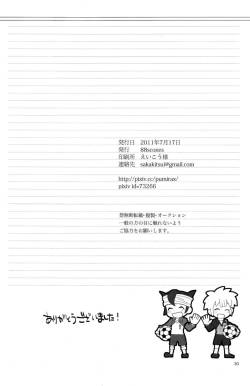 発行日　2011年7月17日
発行　88scones
印刷所　えいこう様
連絡先　sakakitsu@gmail.com
http://pixiv.cc/pumiran/
pixiv id=73266
禁無断転載・複製・オークション
一般の方の目に触れないよう
ご協力をお願いします。
ありがとうございました!